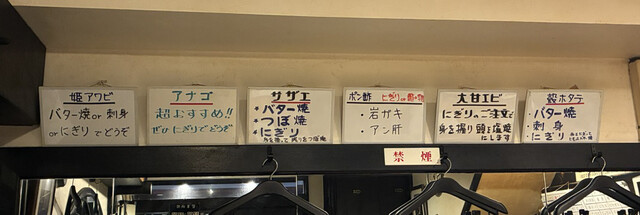 姫アワビ
バター焼or刺身
orにぎりでどうぞ
アナゴ
超おすすめ!!
ぜひにぎりでどうぞ
サザエ
・バター焼
・つぼ焼
・にぎり
ポン酢 にぎりor
・岩ガキ
・アン肝
大甘エビ
にぎりのご注文で
身を握り頭を塩焼
にします
殻ホタテ
・バター焼
・刺身
・にぎり
禁煙